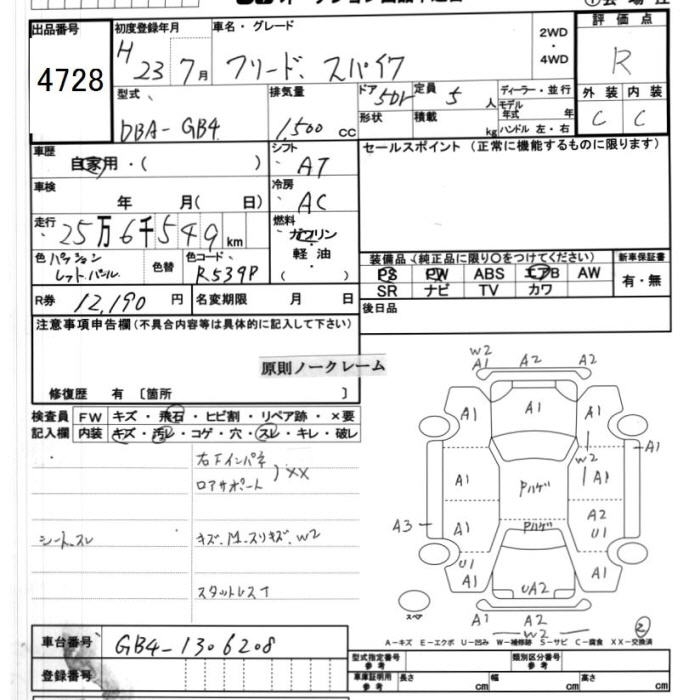 出品番号
4728
初度登録年月
H 23 7月
車名・グレード
フリード、スパイク
2WD
・
4WD
評価点
R
型式
DBA-GB4
排気量
1,500 cc
ドア 5Dr
定員 5 人
形状
積載 kg
ディーラー・並行
モデル年式 年
ハンドル 左・右
外装 内装
C C
車歴
自家用・( )
シフト
AT
車検
年 月( 日)
冷房
AC
走行
25万6千549km
燃料
ガソリン
・
軽油
( )
色
色替
色コード
R539P
セールスポイント(正常に機能するものに限ります)
装備品(純正品に限り○をつけてください)
新車保証書
PS PW ABS エアB AW
SR ナビ TV カワ
有・無
R券 12,190 円
名変期限 月 日
後日品
注意事項申告欄(不具合内容等は具体的に記入して下さい)
原則ノークレーム
修復歴 有 〔箇所 〕
検査員
記入欄
FW キズ・飛石・ヒビ割・リペア跡・×要
内装 キズ・汚レ・コゲ・穴・スレ・キレ・破レ
右Fインパネ
ロアサポート
XX
シートスレ
キズ、M、スリキズ、W2
スタットレス
W2
A1 A2 A2
A1 A1 A1
A1
W2
A1 Pハゲ A1
A3 A1 Pハゲ A2
U1
U1
A1 UA2 A1
スペア
A1 A2
W2
②
A-キズ E-エクボ U-凹み W-補修跡 S-サビ C-腐食 XX-交換済
車台番号 GB4-1306208
登録番号
型式指定番号
参考
類別区分番号
参考
車庫証明用
参考
長さ cm
幅 cm
高さ cm